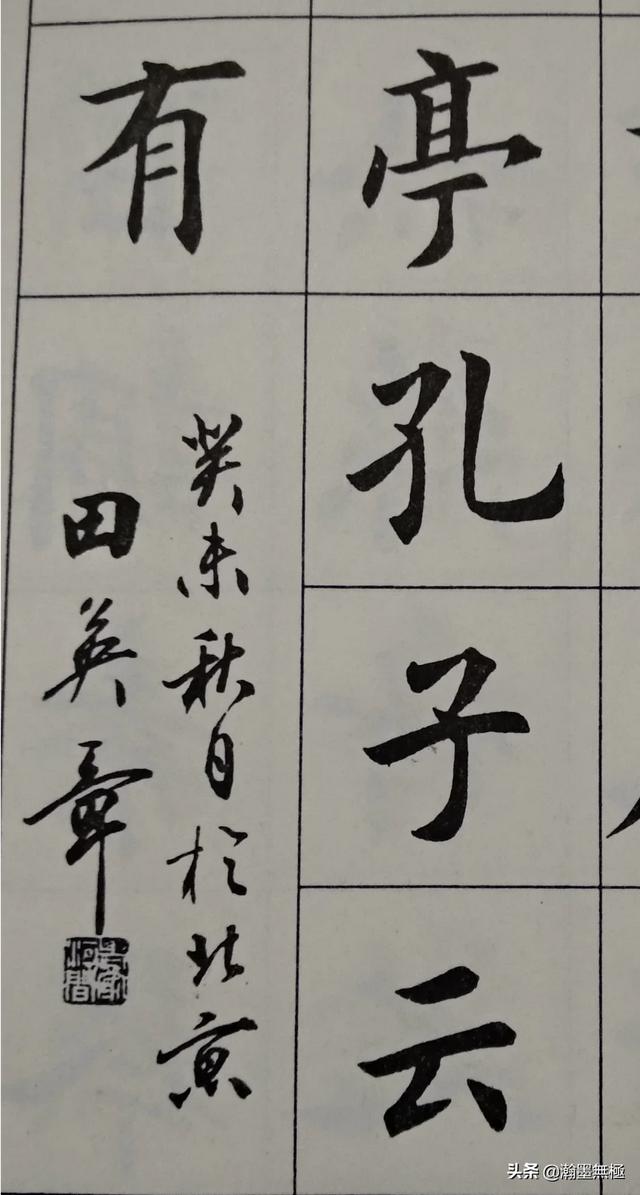 亭孔子云
有
癸未秋月於北京
田英章
头条 @瀚墨無極